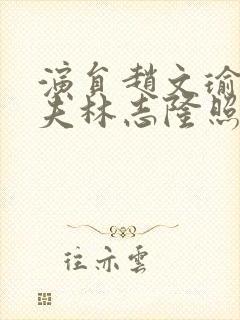 演員趙文瑜
夫林志隆照
往亦雲